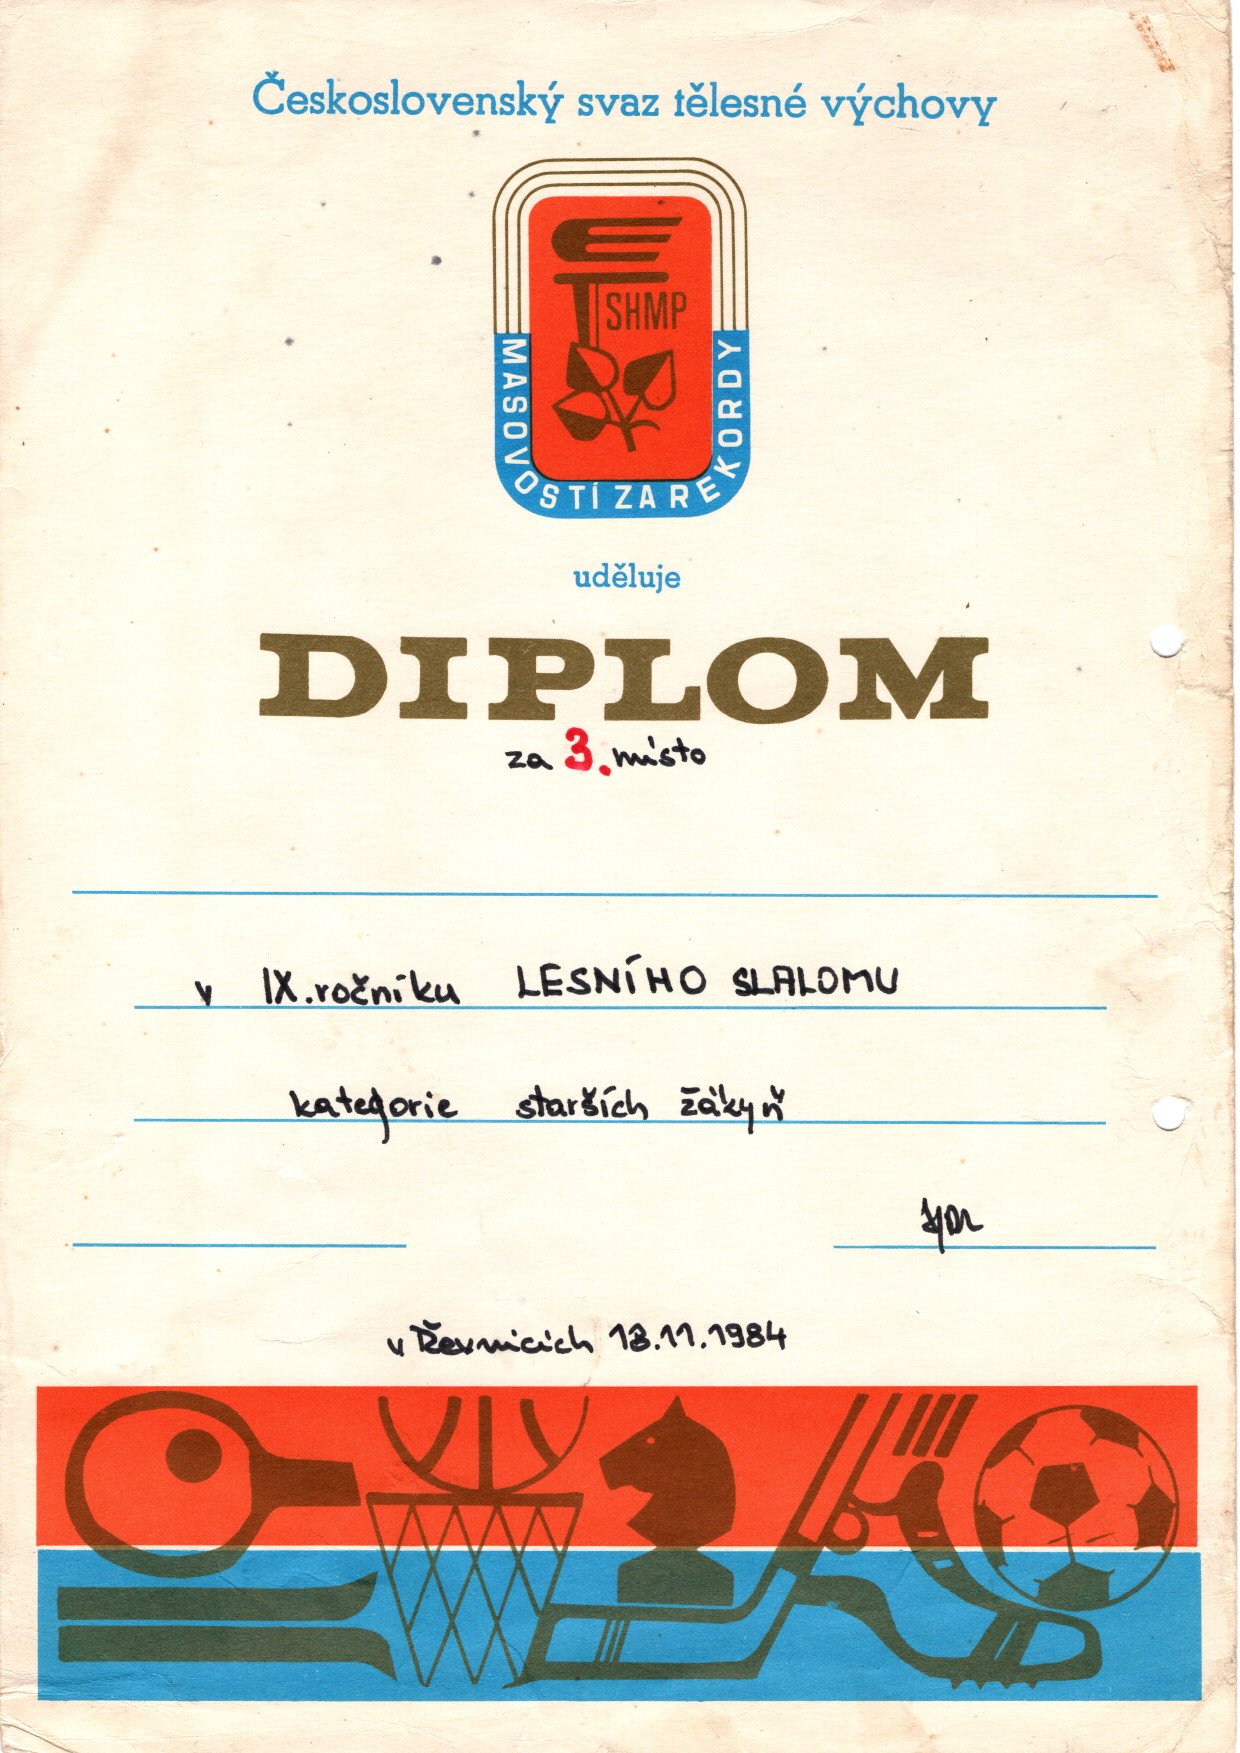 Československý svaz tělesné výchovy
SHMP
MASOVOSTÍ ZA REKORDY
uděluje
DIPLOM
za 3. místo
v IX. ročníku LESNÍHO SLALOMU
kategorie starších žákyň
v Řevnicích 18.11.1984